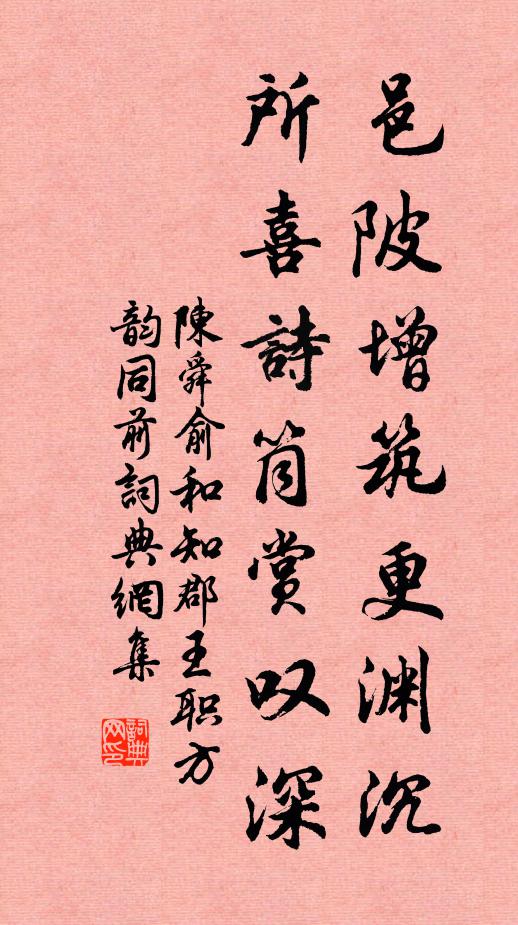 邑陂增筑更渊沉
所喜詩筒赏叹深
陳舜俞和知郡王职方
韵同前詞典網集
詞典网印